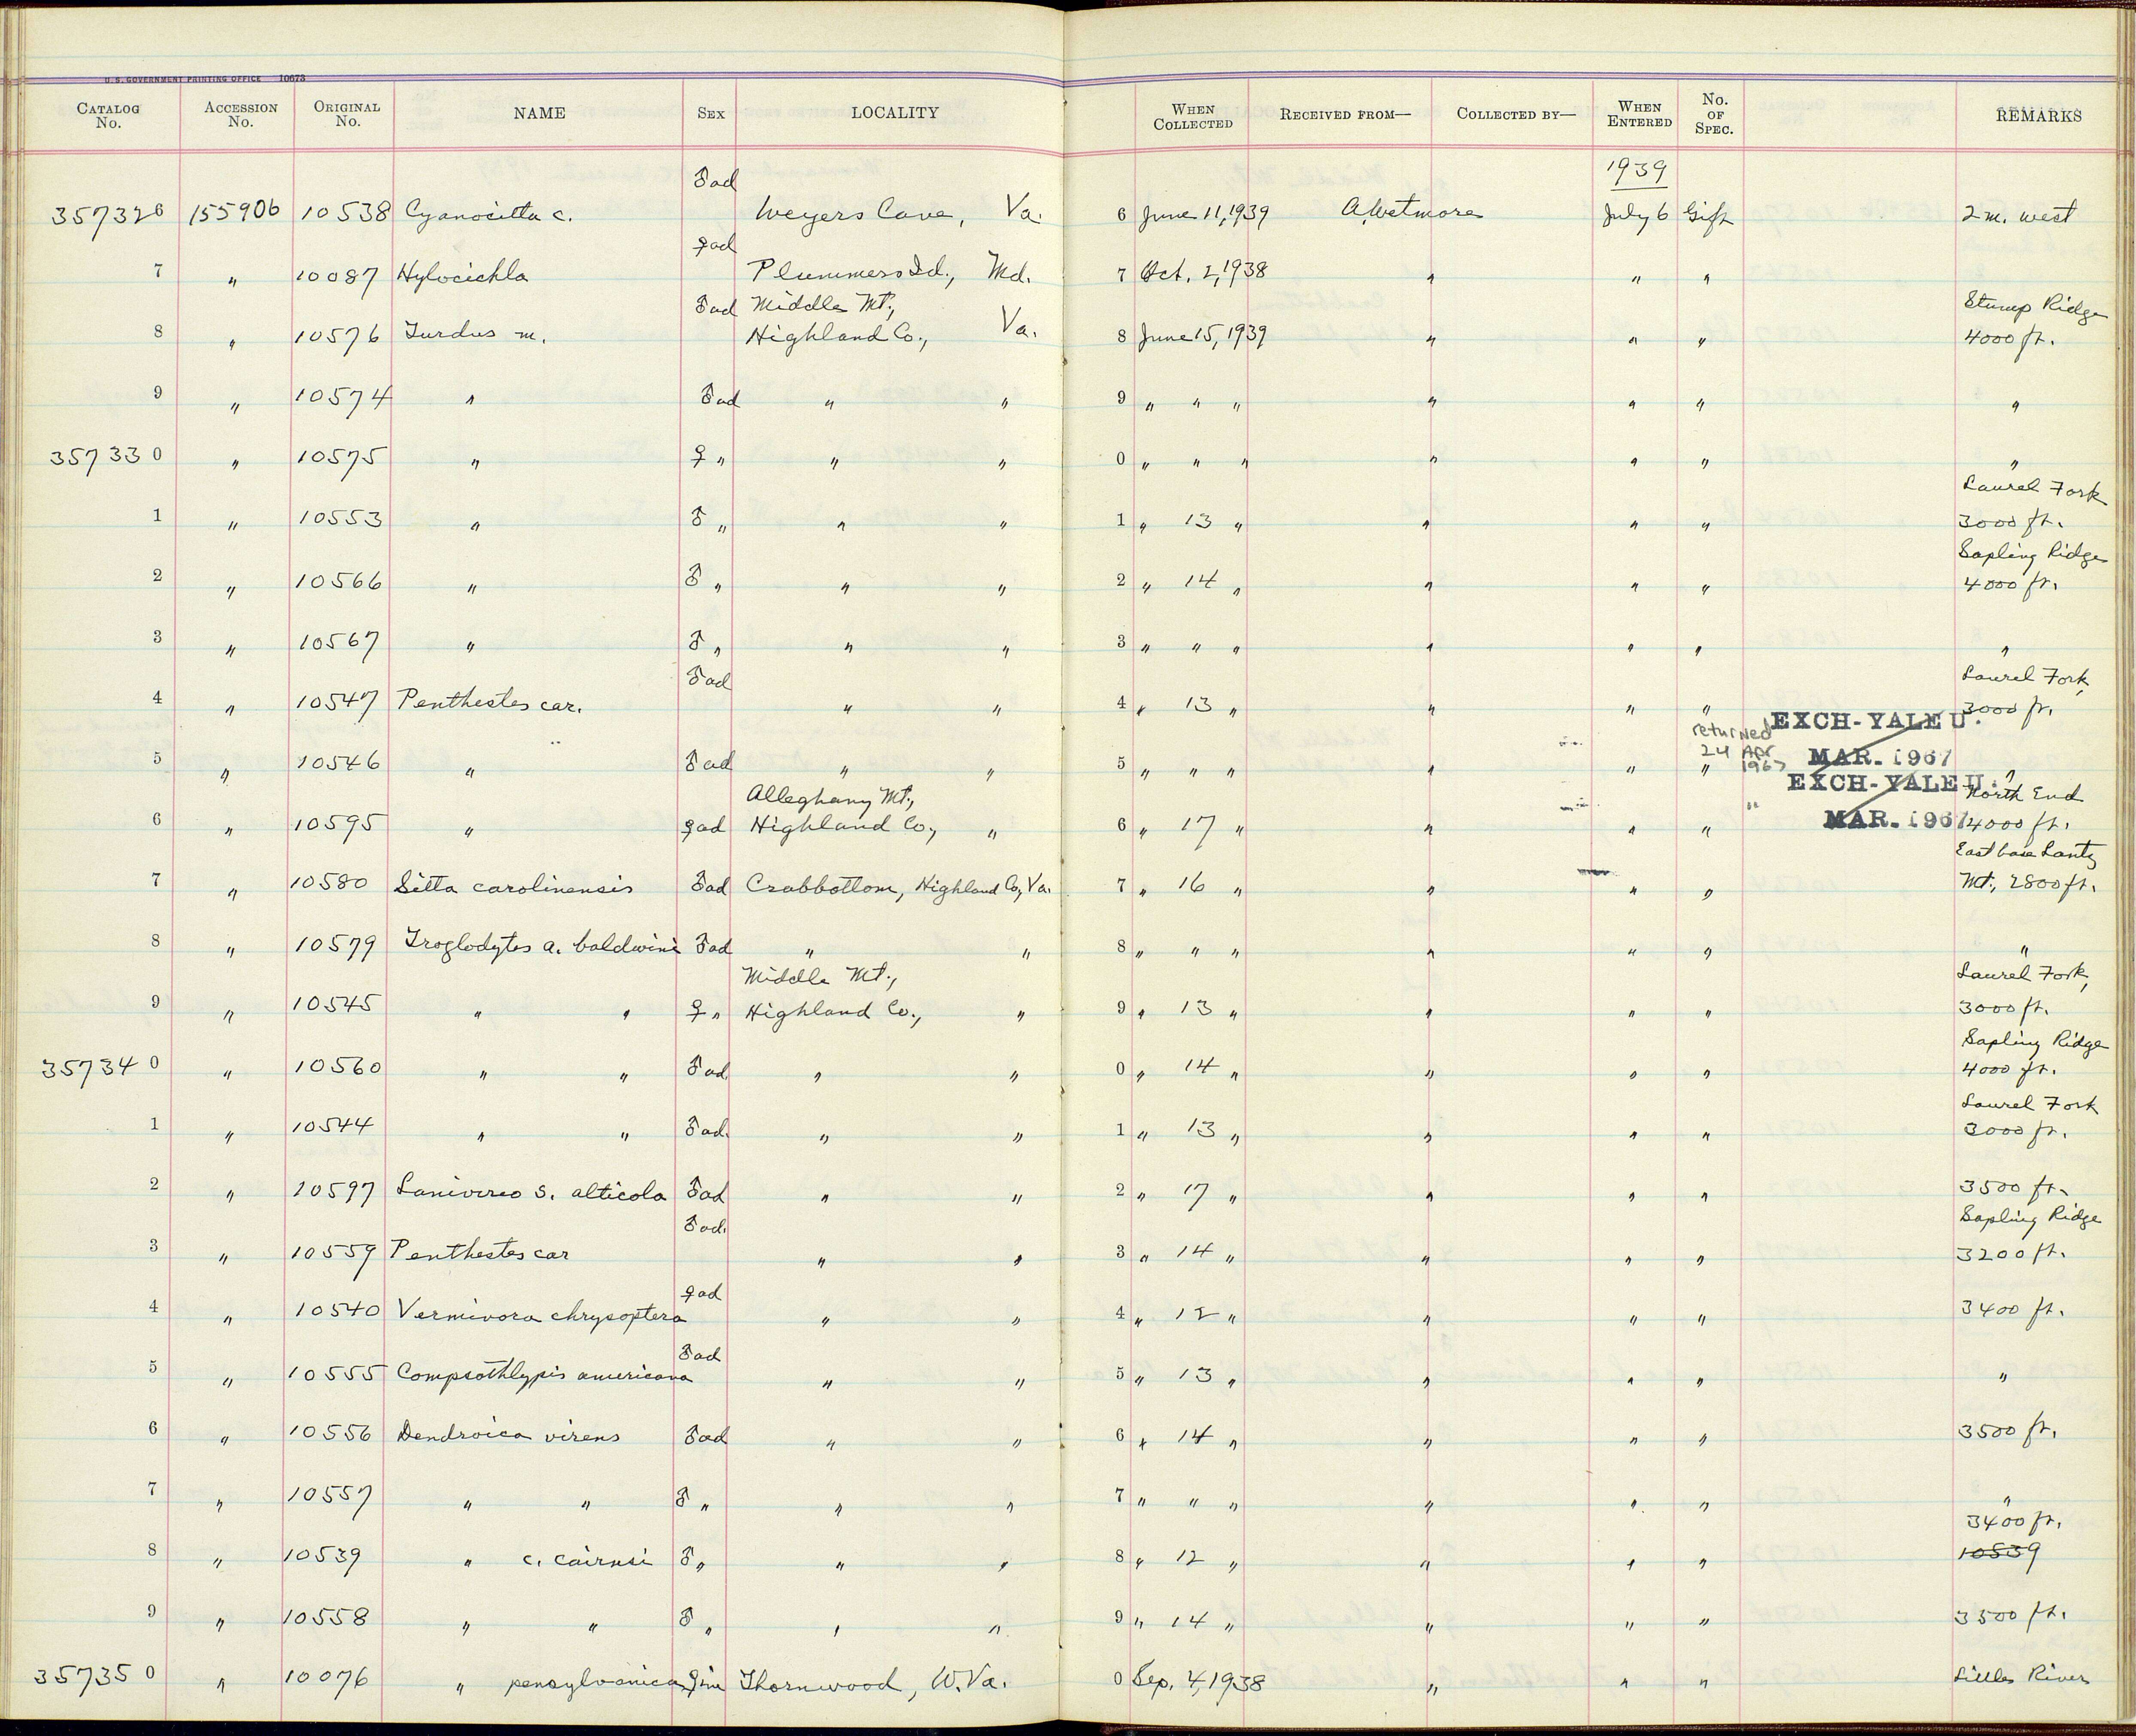 U. S. GOVERNMENT PRINTING OFFICE 10673
CATALOG No. ACCESSION No. ORIGINAL No. NAME SEX LOCALITY WHEN COLLECTED RECEIVED FROM— COLLECTED BY— WHEN ENTERED No. OF SPEC. REMARKS
1939
357326 155906 10538 Cyanocitta c. ♂ad Weyers Cave, Va. 6 June 11, 1939 A. Wetmore July 6 Gift 2 m. west
7 " 10087 Hylocichla ♀ad Plummers Id., Md. 7 Oct. 2, 1938 " " "
8 " 10576 Turdus m. ♂ad Middle Mt., Highland Co., Va. 8 June 15, 1939 " " " Stump Ridge 4000 ft.
9 " 10574 " ♂ad " " 9 " " " " " " "
357330 " 10575 " ♀ " " " 0 " " " " " " "
1 " 10553 " ♂ " " " 1 " 13 " " " " Laurel Fork 3000 ft.
2 " 10566 " ♂ " " " 2 " 14 " " " " Sapling Ridge 4000 ft.
3 " 10567 " ♂ " " " 3 " " " " " " "
4 " 10547 Penthestes car. ♂ad " " 4 " 13 " " " " Laurel Fork, 3000 ft.
EXCH-YALE U.
5 " 10546 " ♂ad " " 5 " " " " " " returned 24 Apr 1967 MAR. 1967 "
EXCH-YALE U.
6 " 10595 " ♀ad Alleghany Mt., Highland Co., " 6 " 17 " " " " " MAR. 1967 North End 4000 ft.
7 " 10580 Sitta carolinensis ♂ad Crabbottom, Highland Co, Va. 7 " 16 " " " " East base Lantz Mt., 2800 ft.
8 " 10579 Troglodytes a. baldwini ♂ad " " 8 " " " " " " "
9 " 10545 " " ♀ " Middle Mt., Highland Co., " 9 " 13 " " " " Laurel Fork, 3000 ft.
357340 " 10560 " " ♂ad " " 0 " 14 " " " " Sapling Ridge 4000 ft.
1 " 10544 " " ♂ad. " " 1 " 13 " " " " Laurel Fork 3000 ft.
2 " 10597 Lanivireo s. alticola ♂ad " " 2 " 17 " " " " 3500 ft.
3 " 10559 Penthestes car ♂ad. " " 3 " 14 " " " " Sapling Ridge 3200 ft.
4 " 10540 Vermivora chrysoptera ♀ad " " 4 " 12 " " " " 3400 ft.
5 " 10555 Compsothlypis americana ♂ad " " 5 " 13 " " " " "
6 " 10556 Dendroica virens ♂ad " " 6 " 14 " " " " 3500 ft.
7 " 10557 " " ♂ " " " 7 " " " " " " "
8 " 10539 " c. cairnsi ♂ " " " 8 " 12 " " " " 3400 ft. 10539
9 " 10558 " " ♂ " " " 9 " 14 " " " " 3500 ft.
357350 " 10076 " pensylvanica ♀im Thornwood, W. Va. 0 Sep. 4, 1938 " " " Little River